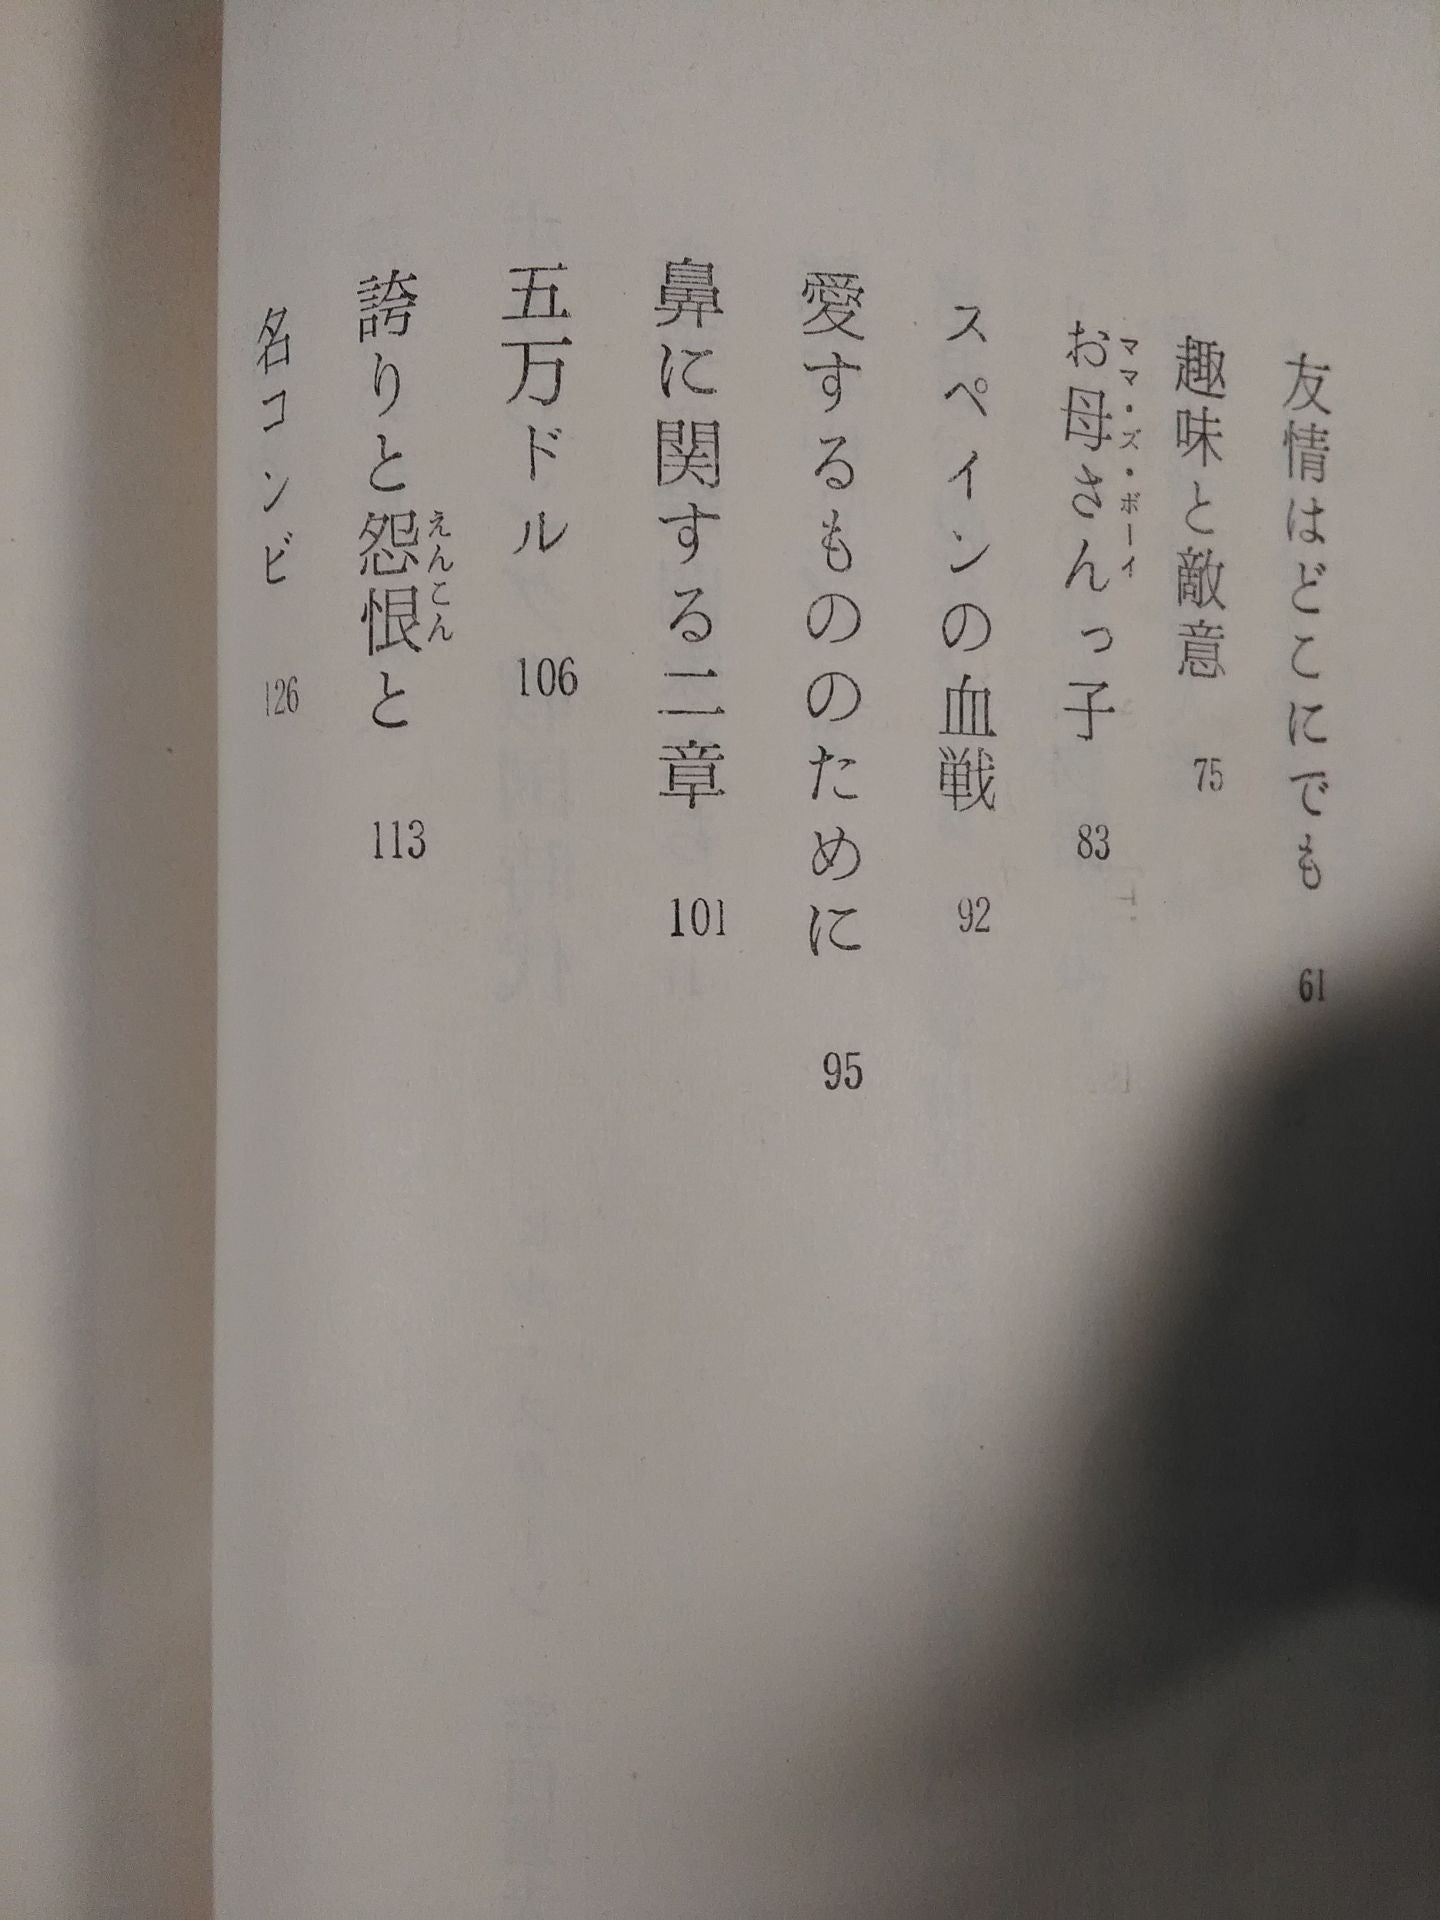 友情はどこにでも 61
趣味と敵意 75
お母さんっ子 83
ママ・ズ・ボーイ
スペインの血戦 92
愛するもののために 95
鼻に関する二章 101
五万ドル 106
誇りと怨恨と 113
えんこん
名コンビ 126